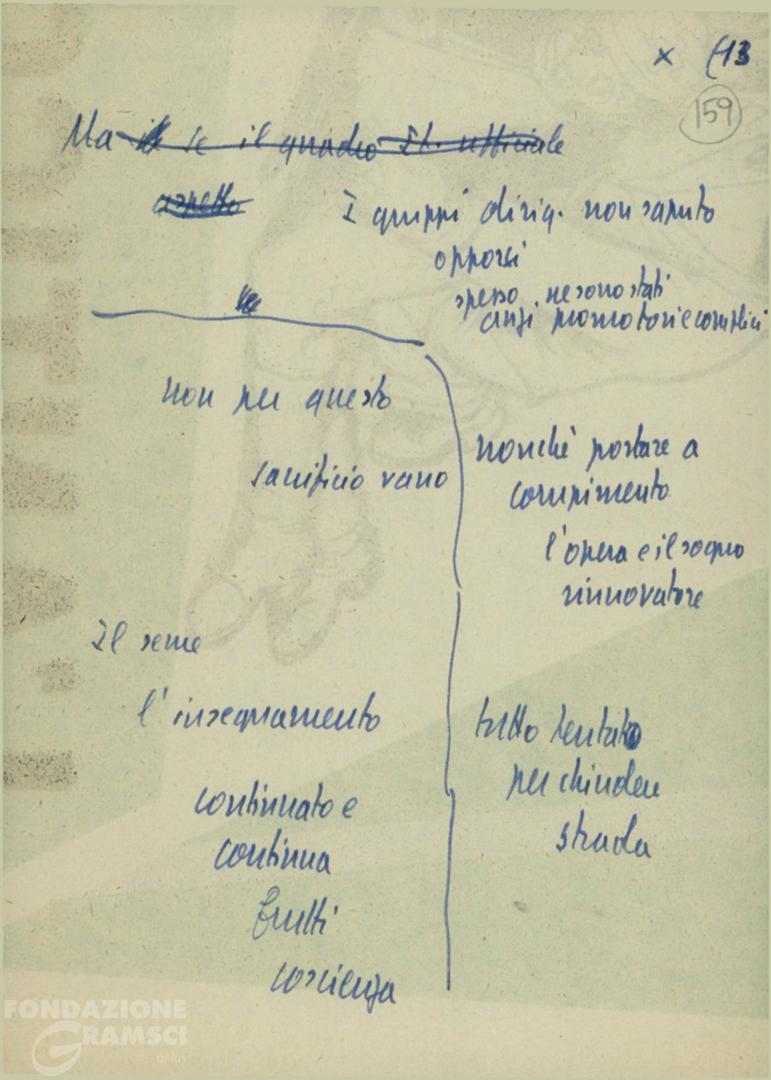 x (13
159
Ma se il quadro st. ufficiale
aspetto
I gruppi dirig. non saputo
opporsi
spesso ne sono stati
anzi promotori e complici
non per questo
sacrificio vano
nonchè portare a
compimento
l'opera e il sogno
rinnovatore
Il seme
l'insegnamento
continuato e
continua
frutti
coscienza
tutto tentato
per chiudere
strada
FONDAZIONE
GRAMSCI
onlus